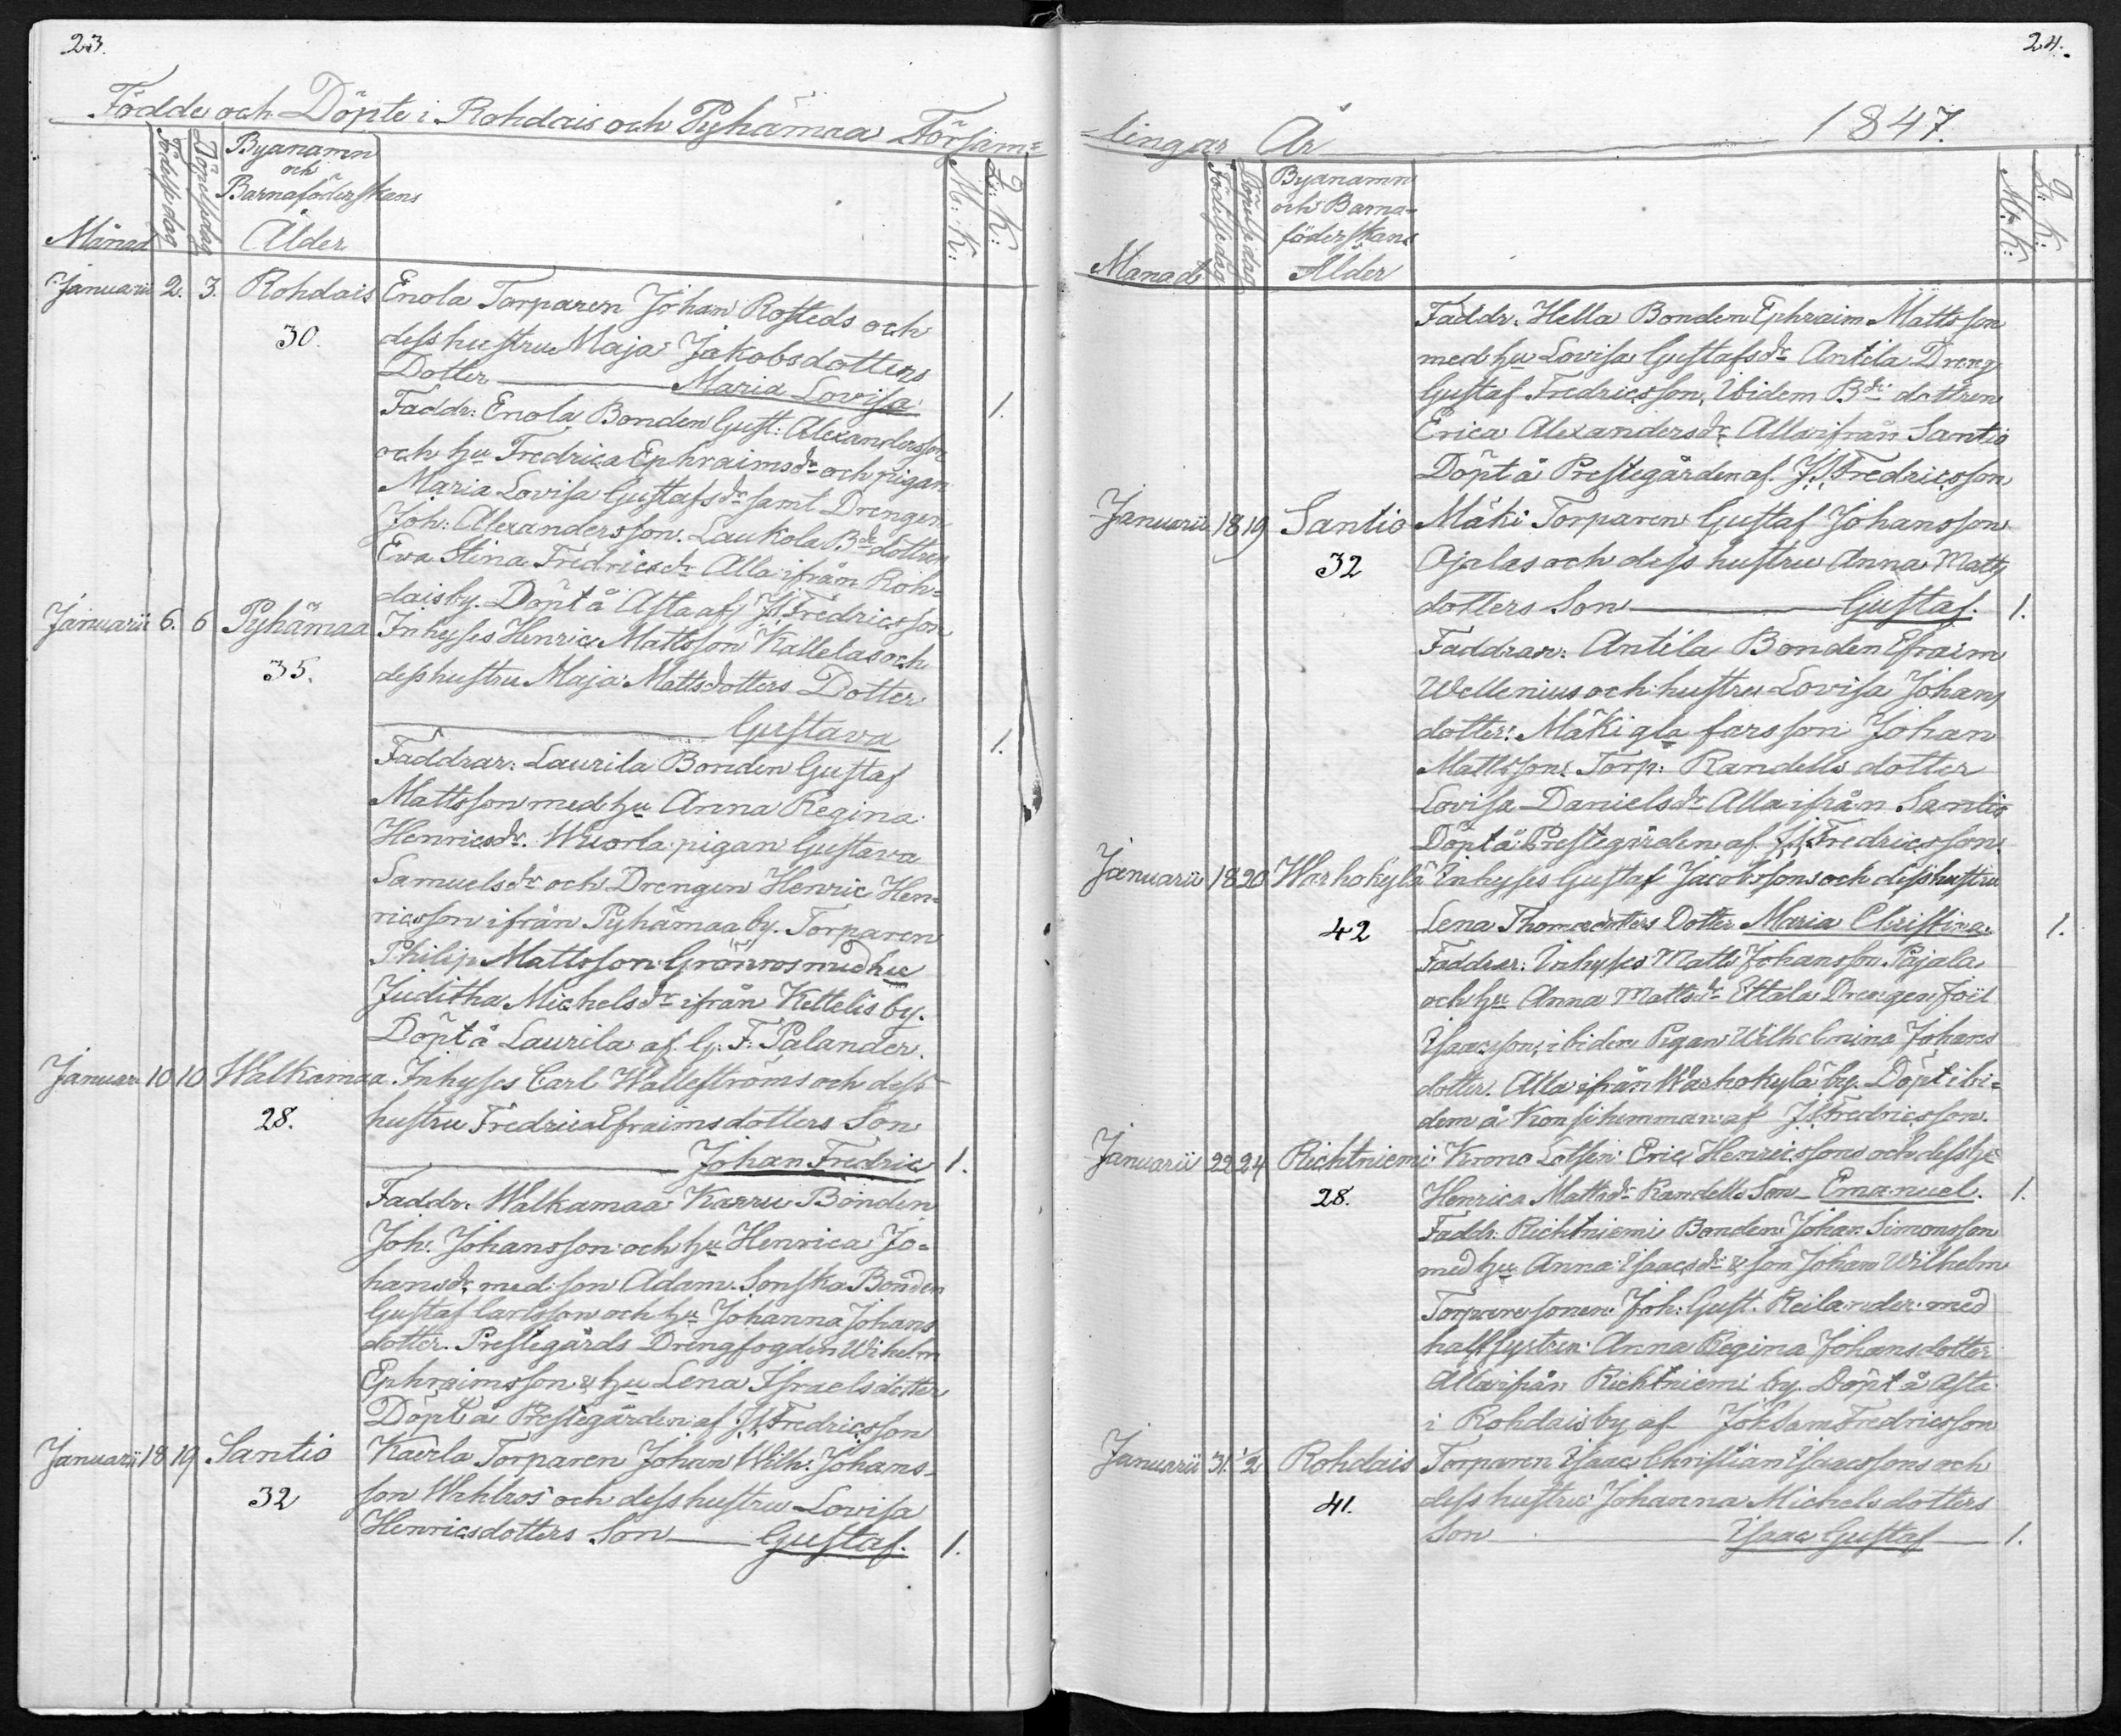 23.
Födde och Döpte i Rohdais och Pyhämaa Församm=
Månad
Födelsedag
Döpelsedag
Byanamn
och
Barnaföderskans
Ålder
M: K:
Q: K:
Januarii 2. 3. Rohdais Enola Torparen Johan Rosteds och
30. dess hustru Maja Jakobsdotters
Dotter Maria Lovisa 1.
Faddr: Enola Bonden Gust: Alexandersson
och hu Fredrica Ephraimsdr och pigan
Maria Lovisa Gustafsdr samt Drengen
Joh: Alexandersson. Laukola Bde dottren
Eva Stina Fredricsdr Alla ifrån Roh=
dais by. Döpt å Asta af J. Fredricsson
Januarii 6. 6 Pyhämaa Inhyses Henric Mattsson Kallelas och
35. dess hustru Maja Mattsdotters Dotter
Gustava 1.
Faddrar: Laurila Bonden Gustaf
Mattsson med hu Anna Regina
Henricsdr. Wuorla pigan Gustava
Samuelsdr och Drengen Henric Hen=
ricsson ifrån Pyhämaa by. Torparen
Philip Mattsson Grönros med hu
Juditha Michelsdr ifrån Kettelis by.
Döpt å Laurila af G: F: Palander.
Januarii 10 10 Walkamaa Inhyses Carl Walleströms och dess
28. hustru Fredrica Efraimsdotters Son
Johan Fredric 1.
Faddr. Walkamaa Karru Bonden
Joh. Johansson och hu Henrica Jo=
hansdr med son Adam. Sonska Bonden
Gustaf Carlsson och hu Johanna Johans
dotter. Prestegårds Drengfogden Wihelm
Ephraimsson & hu Lena Israelsdotter
Döpt å Prestegården af J. Fredricsson
Januarii 18 19 Santio Kaerla Torparen Johan Wilh: Johans-
32 son Wahlros och dess hustru Lovisa
Henricsdotters Son Gustaf. 1.
24.
=lingar År 1847.
Månad
Födelsedag
Döpelsedag
Byanamn
och Barna-
föderskans
Ålder
M: K:
Q: K:
Faddr. Hella Bonden Ephraim Mattsson
med hu Lovisa Gustafsdr Antila Dreng
Gustaf Fredricsson, Ibidem Bde dottren
Erica Alexandersdr Alla ifrån Santio
Döpt å Prestegården af. J. Fredricsson
Januarii 18 19 Santio Mäki Torparen Gustaf Johansson
32 Ojalas och dess hustru Anna Matts
dotters Son Gustaf. 1.
Faddrar: Antila Bonden Efraim
Wellenius och hustru Lovisa Johans
dotter: Mäki gla farsson Johan
Mattsson: Torp: Randells dotter
Lovisa Danielsdr Alla ifrån Santio
Döpt å Prestegården af J. Fredricsson
Januarii 18 20 Warhokylä Inhyses Gustaf Jacobssons och dess hustru
42 Lena Thomasdotters Dotter Maria Christina. 1.
Faddrar: Inhyses Matts Johansson Pajala
och hu Anna Mattsdr Ettala Drengen Joël
Isaacsson, ibidem Pigan Wilhelmina Johans
dotter. Alla ifrån Warhokylä by. Döpt ibi=
dem å Konsi hemman af J. Fredricsson.
Januarii 22 24 Richtniemi Krono Lotsen Eric Henricssons och dess hu
28. Henrica Mattsdr Randells Son Emanuel. 1.
Faddr: Richtniemi Bonden Johan Simonsson
med hu Anna Isaacsdr & son Johan Wilhelm
Torparesonen Joh: Gust. Reilander med
halfsystren Anna Regina Johansdotter
Alla ifrån Richtniemi by. Döpt å Asta
i Rohdais by af Fredricsson
Januarii 31. 1/2 Rohdais Torparen Isaac Christian Isaacssons och
41. dess hustru Johanna Michelsdotters
Son Isaac Gustaf 1.